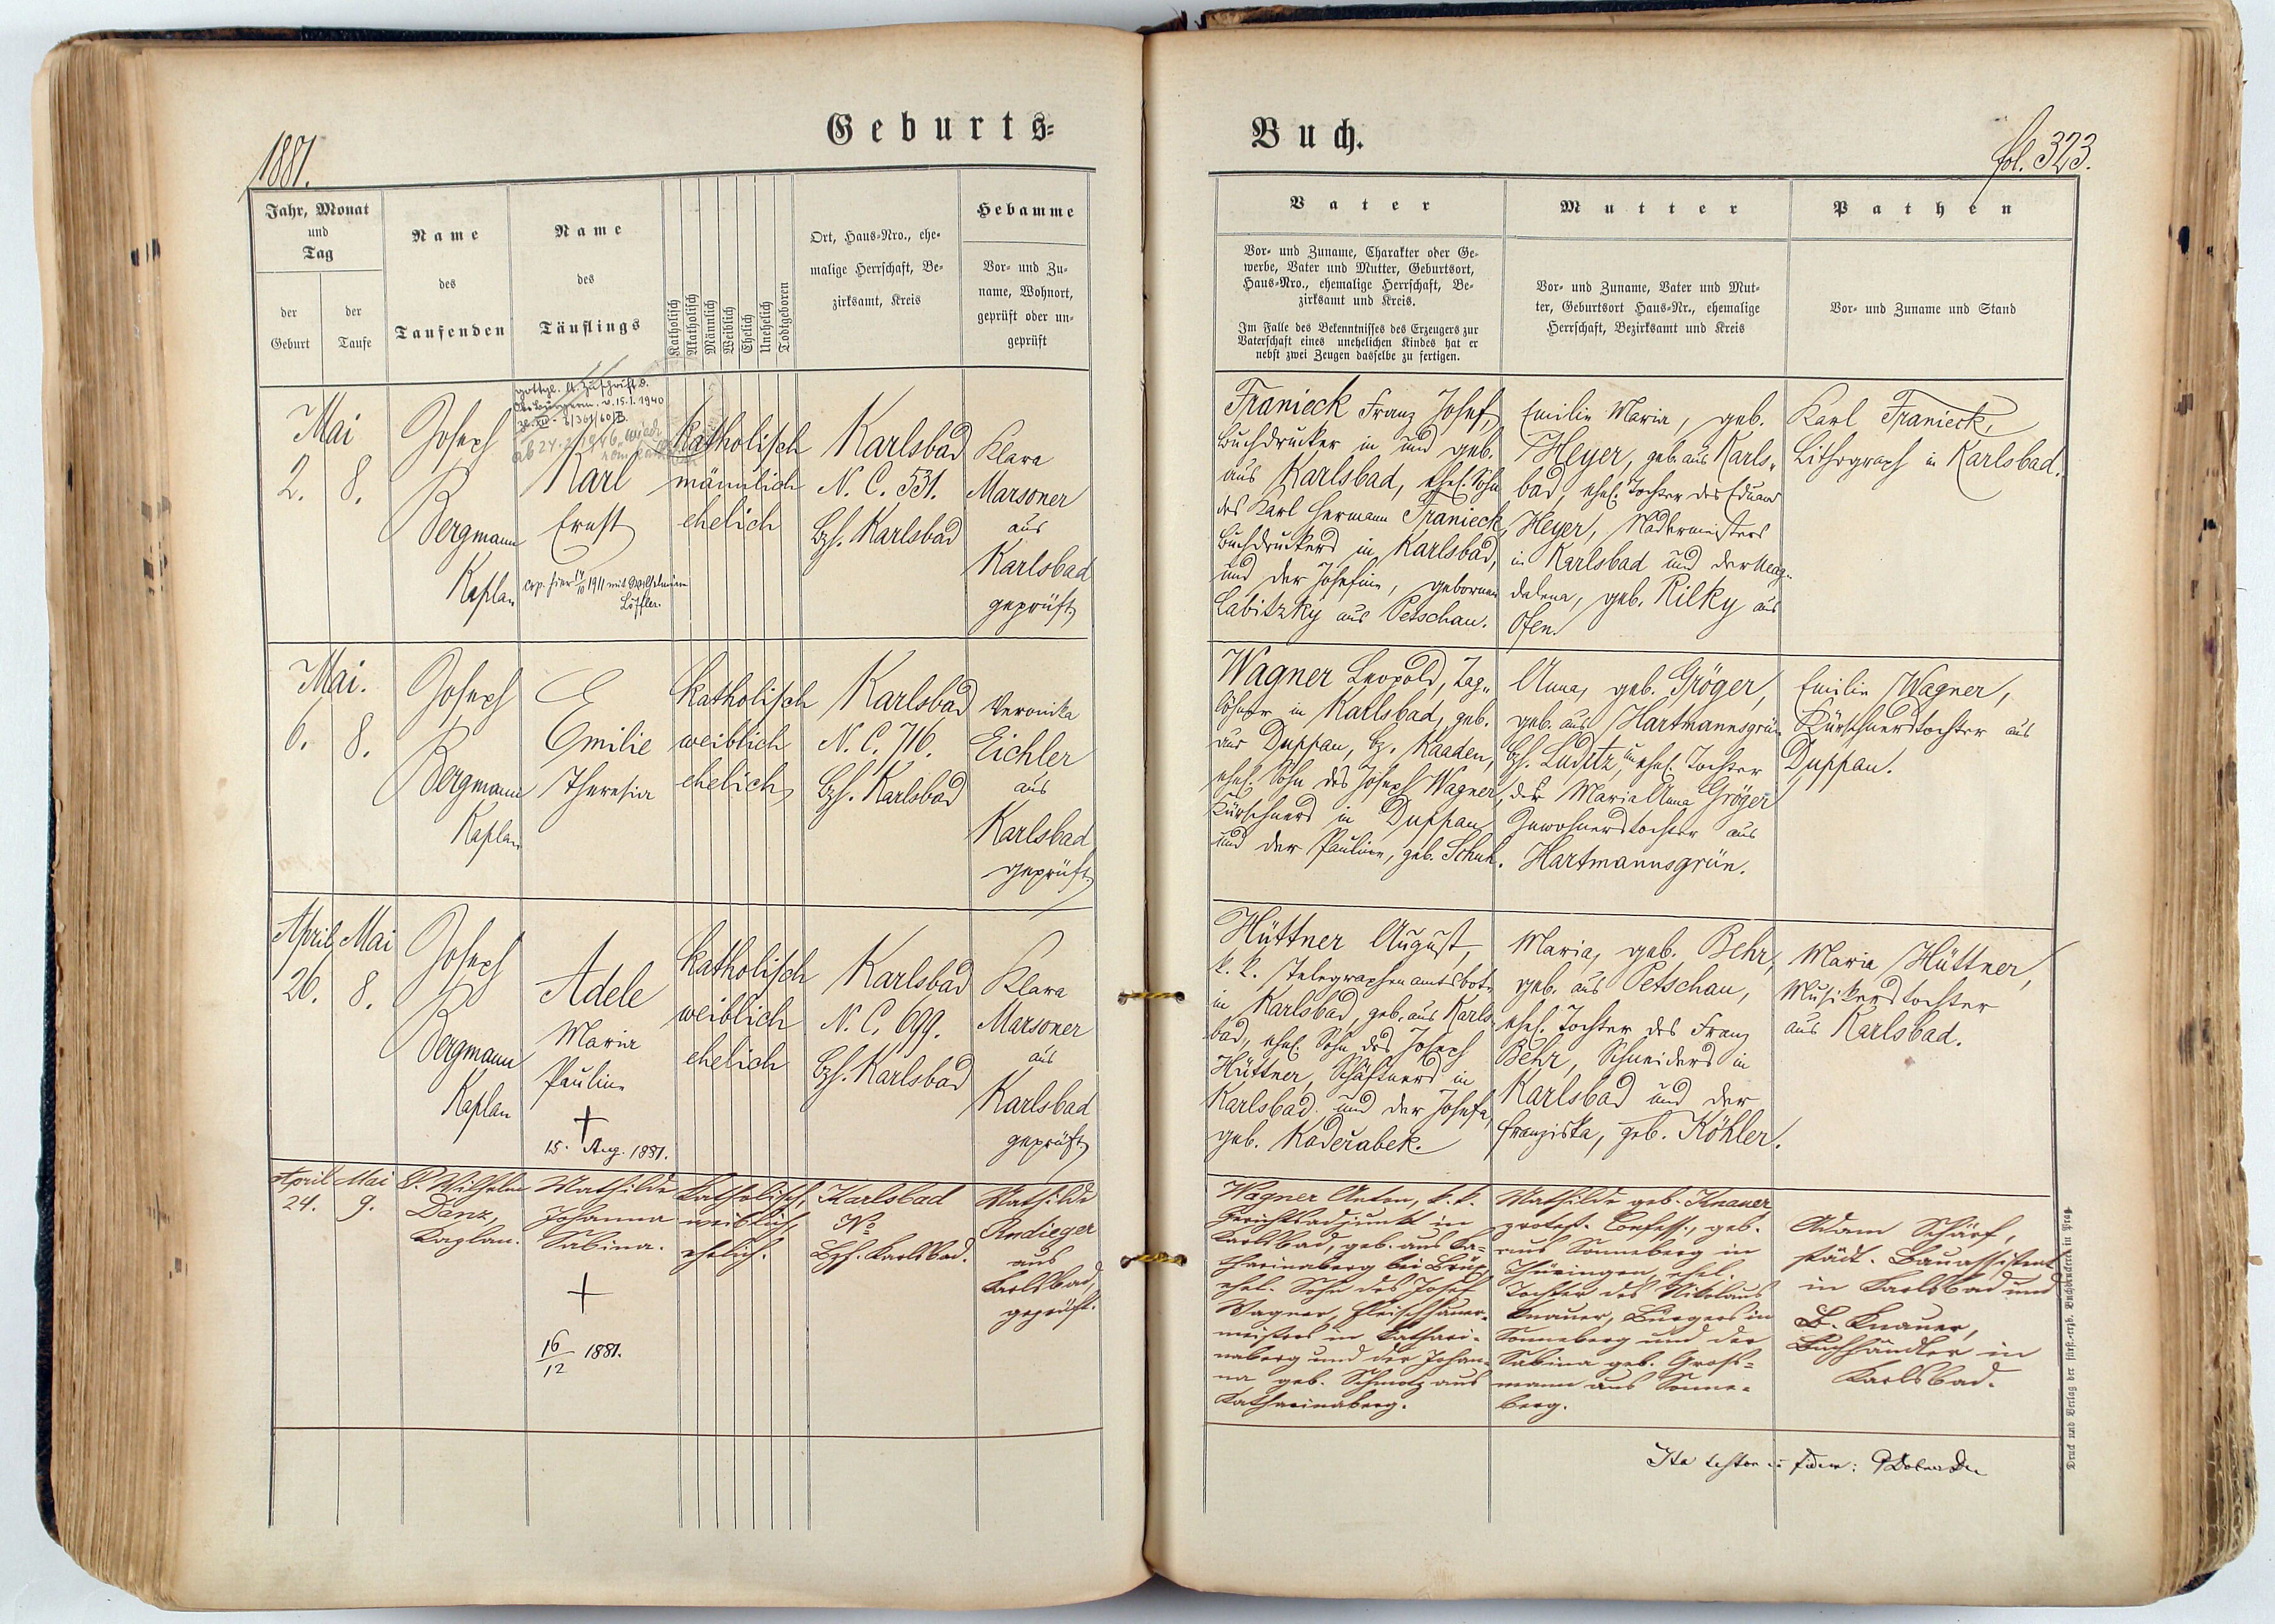 Geburts-
Buch.
1881.
fol. 323.
Jahr, Monat
und
Tag
der
Geburt
der
Taufe
Name
des
Taufenden
Name
des
Täuflings
Katholisch
Akatholisch
Männlich
Weiblich
Ehelich
Unehelich
Todtgeboren
Ort, Haus-Nro., ehe-
malige Herrschaft, Be-
zirksamt, Kreis
Hebamme
Vor- und Zu-
name, Wohnort,
geprüft oder un-
geprüft
Vater
Vor- und Zuname, Charakter oder Ge-
werbe, Vater und Mutter, Geburtsort,
Haus-Nro., ehemalige Herrschaft, Be-
zirksamt und Kreis.
Im Falle des Bekenntnisses des Erzeugers zur
Vaterschaft eines unehelichen Kindes hat er
nebst zwei Zeugen dasselbe zu fertigen.
Mutter
Vor- und Zuname, Vater und Mut-
ter, Geburtsort Haus-Nr., ehemalige
Herrschaft, Bezirksamt und Kreis
Pathen
Vor- und Zuname und Stand
Mai
2.
8.
Joseph
Bergmann
Kaplan
gottgl. lt. Zuschrift d.
v. 15.1.1940
Karl
Ernst
cop. hier 17/10 1911 mit Wilhelmine
Löffler.
katholisch
männlich
ehelich
Karlsbad
N. C. 531.
Bzh. Karlsbad
Klara
Marsoner
aus
Karlsbad
geprüft
Franieck Franz Josef,
Buchdrucker in und geb.
aus Karlsbad, ehel. Sohn
des Karl Hermann Franieck,
Buchdruckers in Karlsbad,
und der Josefine, gebornen
Labitzky aus Petschau.
Emilie Maria, geb.
Heyer, geb. aus Karls-
bad, ehel. Tochter des Eduard
Heyer, Nadlermeisters
in Karlsbad und der Mag-
dalena, geb. Rilky aus
Ofen.
Karl Franieck,
Lithograph in Karlsbad.
Mai.
6.
8.
Joseph
Bergmann
Kaplan
Emilie
Theresia
katholisch
weiblich
ehelich
Karlsbad
N. C. 716.
Bzh. Karlsbad
Veronika
Eichler
aus
Karlsbad
geprüft
Wagner Leopold, Tag-
löhner in Karlsbad, geb.
aus Duppau, Bz. Kaaden,
ehel. Sohn des Joseph Wagner,
Kürschners in Duppau
und der Pauline, geb. Schuh.
Anna, geb. Gröger,
geb. aus Hartmannsgrün
Bzh. Luditz, unehel. Tochter
der Maria Anna Gröger
Inwohnerstochter aus
Hartmannsgrün.
Emilie Wagner,
Kürschnerstochter aus
Duppau.
April
26.
Mai
8.
Joseph
Bergmann
Kaplan
Adele
Maria
Pauline
15. Aug. 1881.
katholisch
weiblich
ehelich
Karlsbad
N. C. 699.
Bzh. Karlsbad
Klara
Marsoner
aus
Karlsbad
geprüft
Hüttner August,
k. k. Telegraphenamtsbote
in Karlsbad, geb. aus Karls-
bad, ehel. Sohn des Joseph
Hüttner, Schäftners in
Karlsbad und der Josefa,
geb. Kaderabek.
Maria, geb. Behr,
geb. aus Petschau,
ehel. Tochter des Franz
Behr, Schneiders in
Karlsbad und der
Franziska, geb. Köhler.
Maria Hüttner,
Musikerstochter
aus Karlsbad.
April
24.
Mai
9.
P. Wilhelm
Danz,
Kaplan.
Mathilde
Johanna
Sabina.
16/12 1881.
katholisch,
weiblich,
ehelich.
Karlsbad
No
Bzh. Karlsbad.
Mathilde
Andieger
aus
Karlsbad,
geprüft.
Wagner Anton, k. k.
Gerichtsadjunkt in
Karlsbad, geb. aus Ka-
tharinaberg bei Brüx,
ehel. Sohn des Josef
Wagner, Fleischhauer-
meisters in Kathari-
naberg und der Johan-
na geb. Schmolz aus
Katharinaberg.
Mathilde geb. Knauer
protest. Confess., geb.
aus Sonneberg in
Thüringen, ehel.
Tochter des Nikolaus
Knauer, Bürgers in
Sonneberg und der
Sabina geb. Groß-
mann aus Sonne-
berg.
Adam Schärf,
städt. Bauassistent
in Karlsbad und
B. Knauer,
Buchhändler in
Karlsbad.
Ita testor in fidem:
Druck und Verlag der fürst.-erzb. Buchdruckerei in Prag.